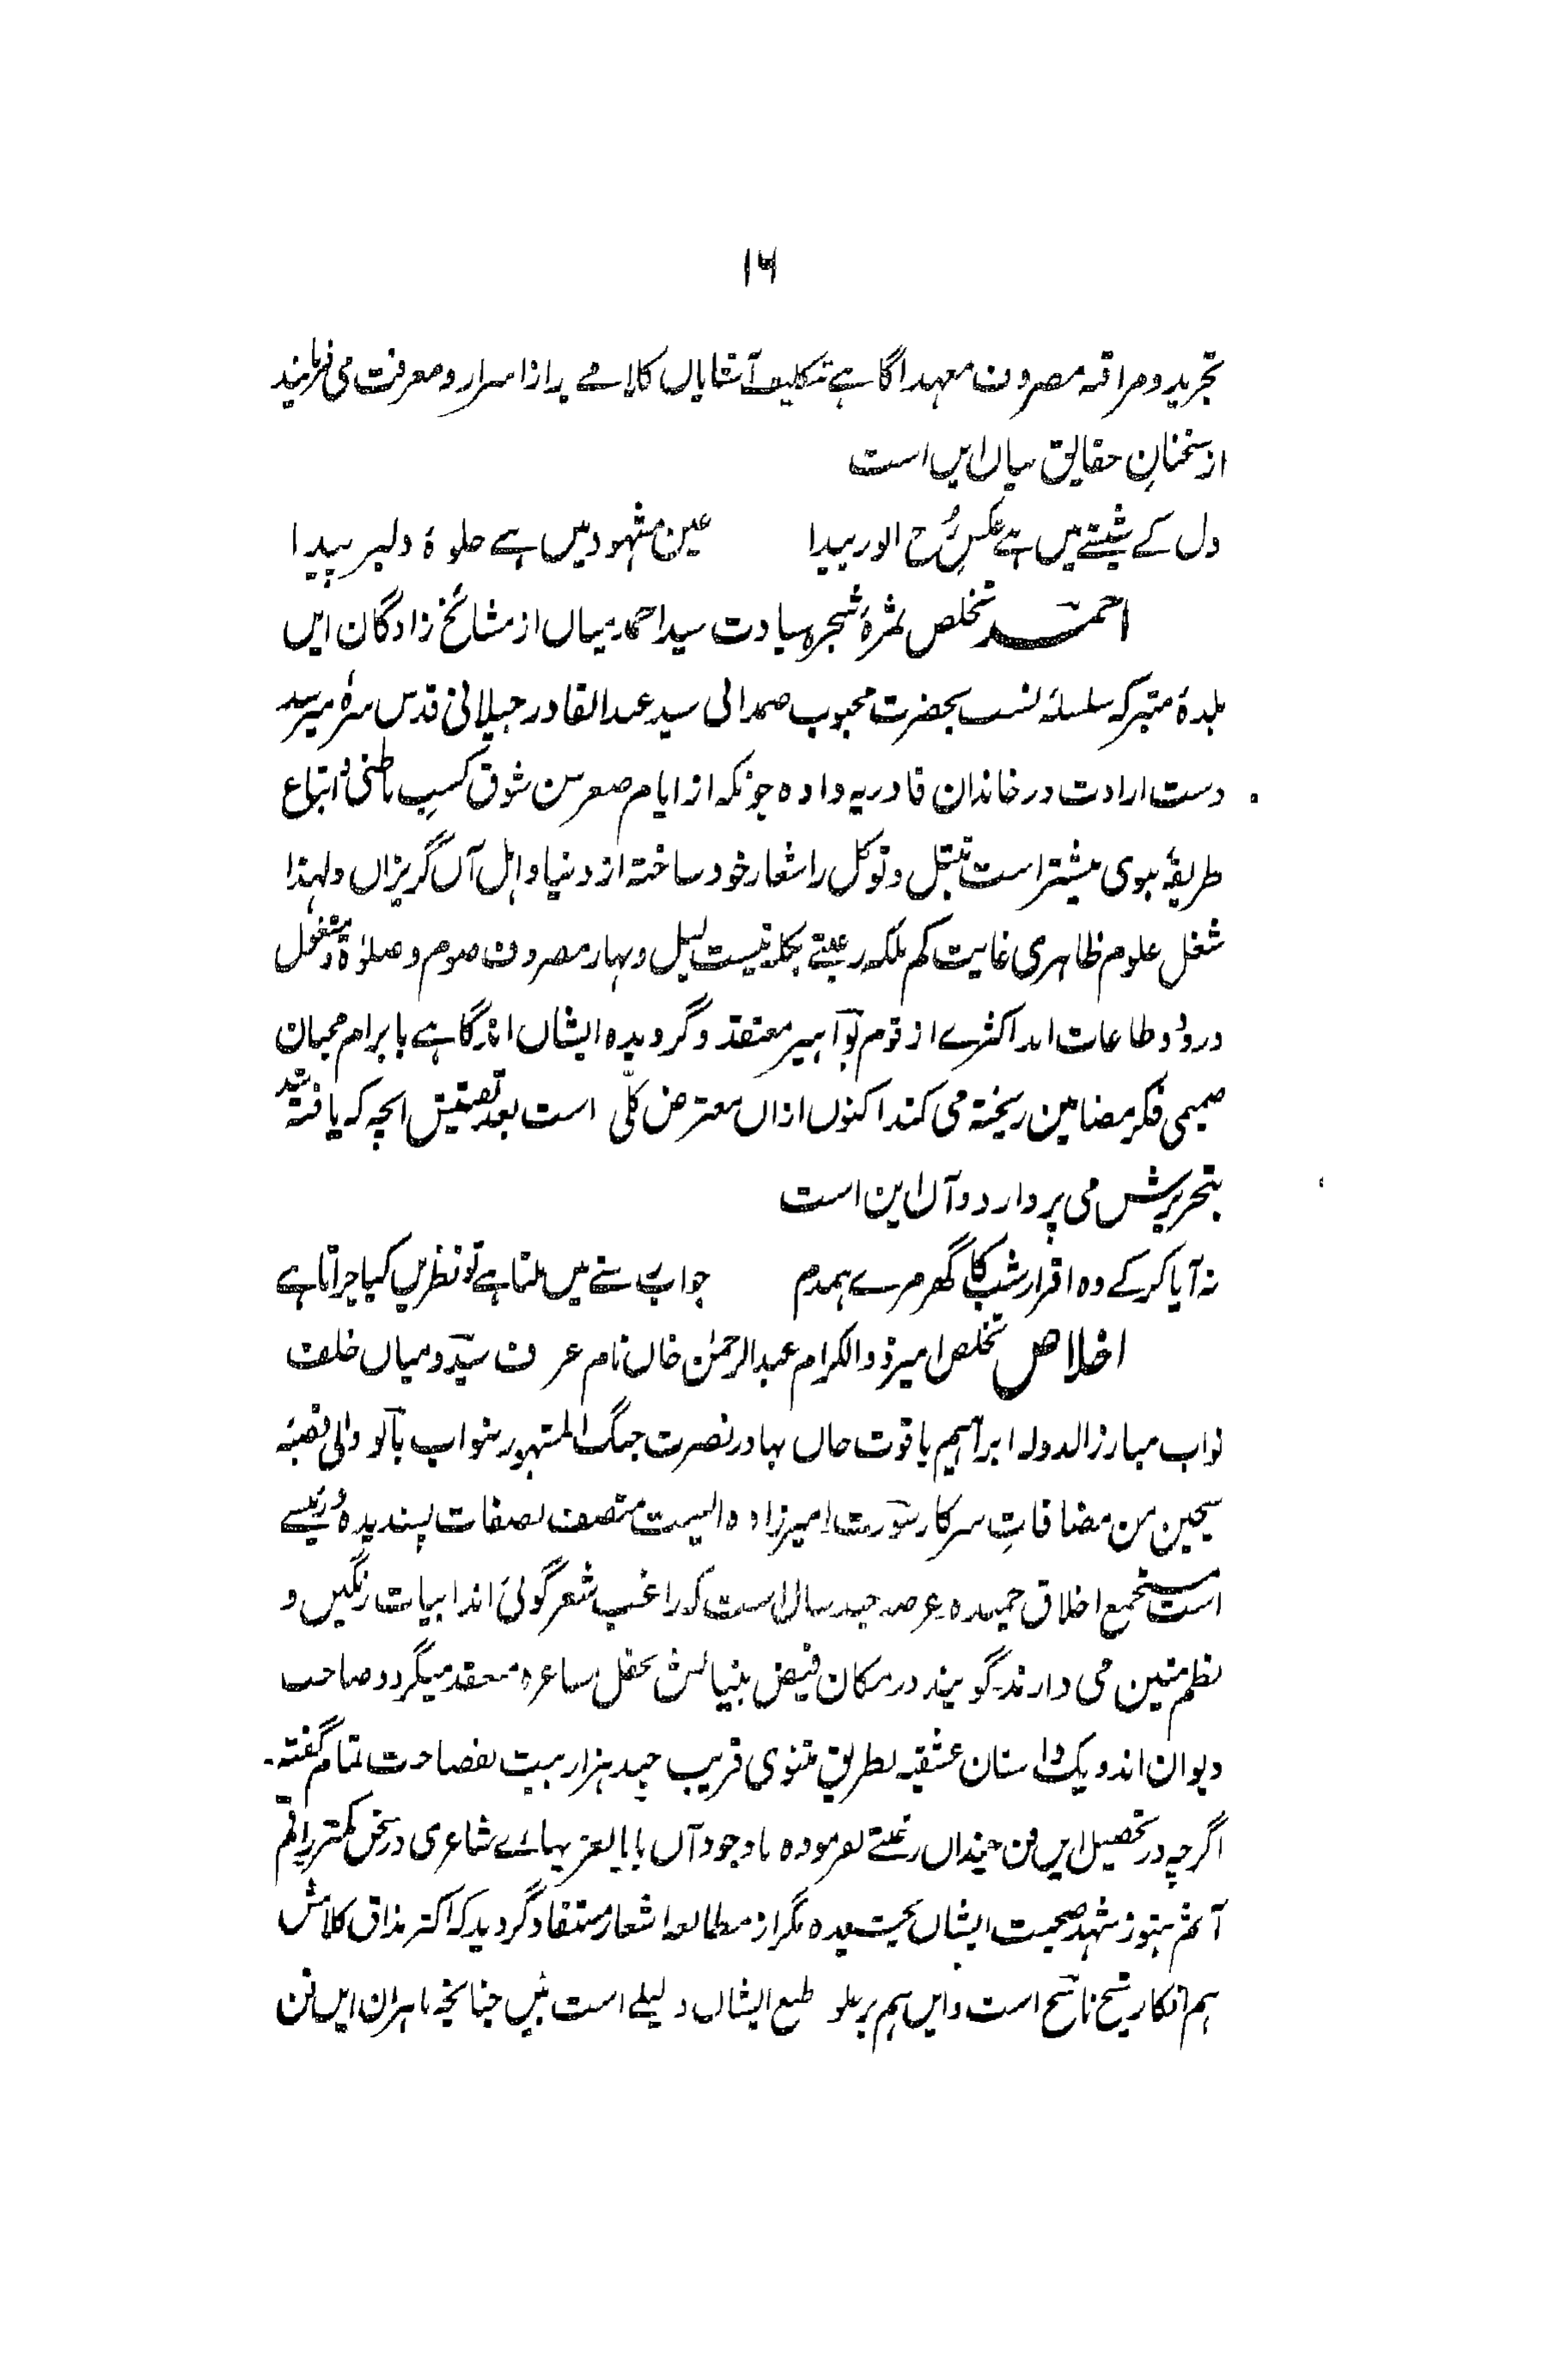 ۱۶
تجرید و مراقبہ مصروف معہذا گاہے بتکلیف آشنایاں کلامے پر از اسرار و معرفت می فرمایند
از سخنانِ حقایق بیاں ایں است
دل کے شیشے میں ہے عکسِ رُخ انور پیدا عین مشہود میں ہے جلوۂ دلبر پیدا
احمد تخلص ثمرۂ شجرۂ سیادت سید احمد میاں از مشائخ زادگان ایں
بلدۂ متبرکہ سلسلۂ نسب بحضرت محبوب صمدانی سید عبدالقادر جیلانی قدس سرہٗ میرسد
دست ارادت در خاندان قادریہ دادہ چونکہ از ایام صغر سن شوق کسبِ باطنی و اتباع
طریقۂ نبوی بیشتر است تبتل و توکل را شعار خود ساختہ از دنیا و اہل آں گریزاں و لہٰذا
شغل علوم ظاہری غایت کم بلکہ رغبتے بکلہ نیست لیل و نہار مصروف صوم و صلوٰۃ و مشغول
درود و طاعات اند اکثرے از قوم بوآہیر معتقد و گرویدہ ایشاں اند گاہے بابرام محبان
صمیمی فکر مضامین ریختہ می کند اکنوں ازاں معترض کلّی است بعد تفتیش انچہ کہ یافتہ شد
بتحریرش می پردازد و آں این است
نہ آیا کر کے وہ اقرار شب کا گھر مرے ہمدم جواب رستے میں ملتا ہے تو نظریں کیا چراتا ہے
اخلاص تخلص امیر ذوالکرام عبدالرحمٰن خاں نام عرف سیدّو میاں خلف
نواب مبارزالدولہ ابراہیم یاقوت خاں بہادر نصرت جنگ المشہور بنواب بآلو والی قصبۂ
سچین من مضافاتِ سرکار سوٓرت امیرزادہ ایست متصف بصفات پسندیدہ و رئیسے
است مستجمع اخلاق حمیدہ عرصہ چند سال است کہ راغب شعر گوئی اند ابیات رنگیں و
نظم متین می دارند گویند در مکان فیض بنیانش محفل مشاعرہ منعقد میگردد صاحب
دیوان اند و یک داستان عشقیہ بطریق مثنوی قریب چند ہزار بیت بفصاحت تمام گفتہ۔
اگرچہ در تحصیل ایں فن چنداں رغبتے نفرمودہ باوجود آں شاعری در سخن کمتر راقم
آثم ہنوز شہد صحبت ایشاں نچشیدہ مگر از مطالعہ اشعار مستفاد گردید کہ اکثر مذاق کلامش
ہم افکار شیخ ناسٓخ است و ایں ہم بر علو طبع ایشاں دلیلے است مبیں چنانچہ ماہران ایں فن